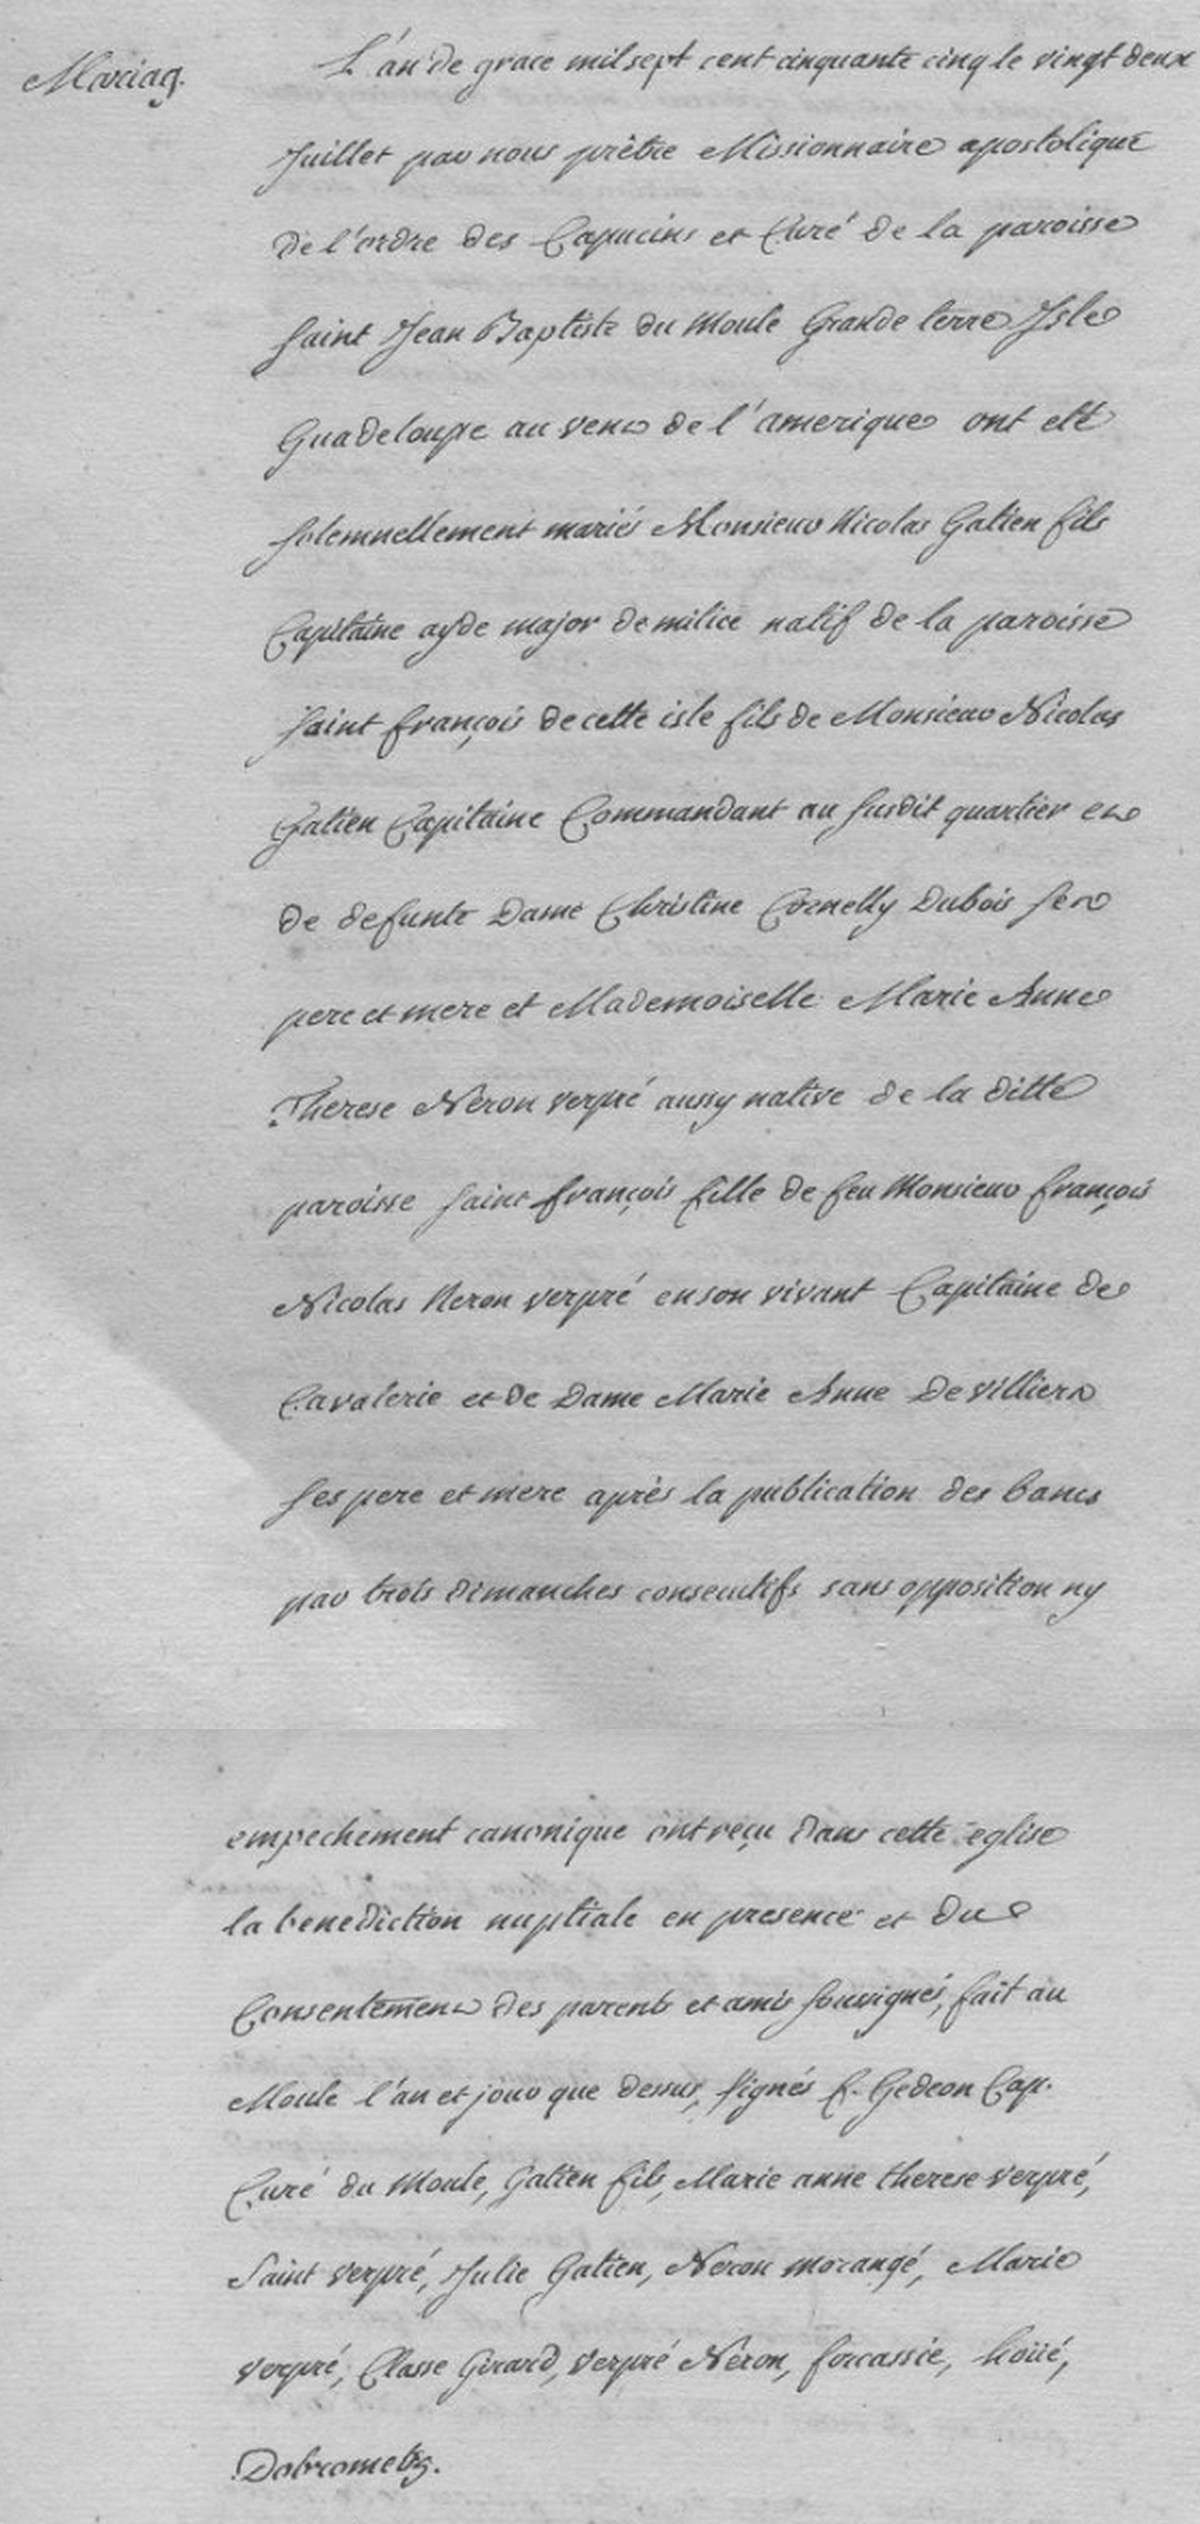 Mariag.
L'an de grace mil sept cent cinquante cinq le vingt deux
Juillet par nous prêtre Missionnaire apostolique
De l'ordre des Capucins et Curé de la paroisse
Saint Jean Baptiste du Moule Grande terre Isle
Guadeloupe au vent de l'amerique ont eté
solemnellement mariés Monsieur Nicolas Gatien fils
Capitaine ayde major de milice natif de la paroisse
Saint françois de cette isle fils de Monsieur Nicolas
Gatien Capitaine Commandant au susdit quartier et
de defunte Dame Christine Cornelly Dubois ses
pere et mere et Mademoiselle Marie Anne
Therese Neron verpré aussy native de la ditte
paroisse saint françois fille de feu Monsieur françois
Nicolas Neron verpré en son vivant Capitaine de
Cavalerie et de Dame Marie Anne De villiers
ses pere et mere après la publication des bancs
par trois dimanches consecutifs sans opposition ny
empechement canonique ont reçu dans cette eglise
la benediction nuptiale en presence et du
Consentement des parents et amis soussignés, fait au
Moule l'an et jour que dessus, signés f. Gedeon Cap.
Curé du Moule, Gatien fils, Marie anne therese verpré,
Saint verpré, Julie Gatien, Neron morangé, Marie
verpré, Classe Girard, verpré Néron, forcassie, hoüé,